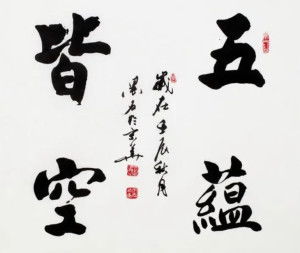 五蘊
皆空
歲在壬辰秋月